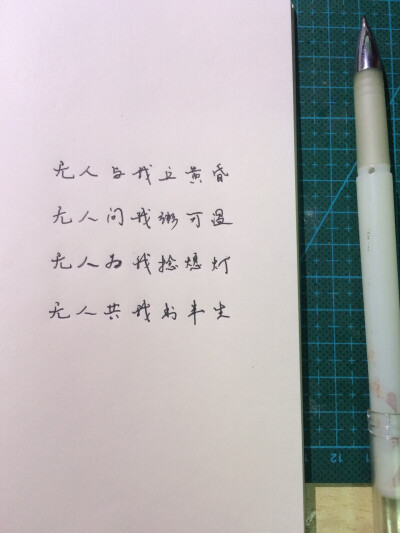 无人与我立黄昏
无人问我粥可温
无人为我捻熄灯
无人共我书半生
12